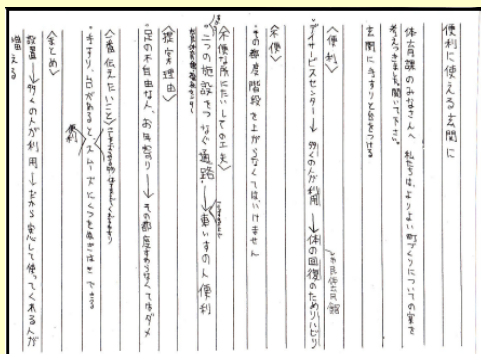 便利に使える玄関に
体育課のみなさんへ 私たちは、よりよい町づくりについての案を
考えつきました。聞いて下さい。
玄関に手すりと台をつける
〈便利〉
デイサービスセンター→多くの人が利用→体の回復のためリハビリ
市民体育館
〈不便〉
・その都度階段を上がらなくてはいけません
〈不便な所にたいしての工夫〉
・二つの施設をつなぐ通路→車いすの人便利
〈提案理由〉
・足の不自由な人、お年寄り→その都度すわらなくてはダメ
〈一番伝えたいこと〉
・手すり、台があるとスムーズにくつをぬぎはきできる
便利
〈まとめ〉
設置→多くの人が利用→だから安心して使ってくれる人が
増える